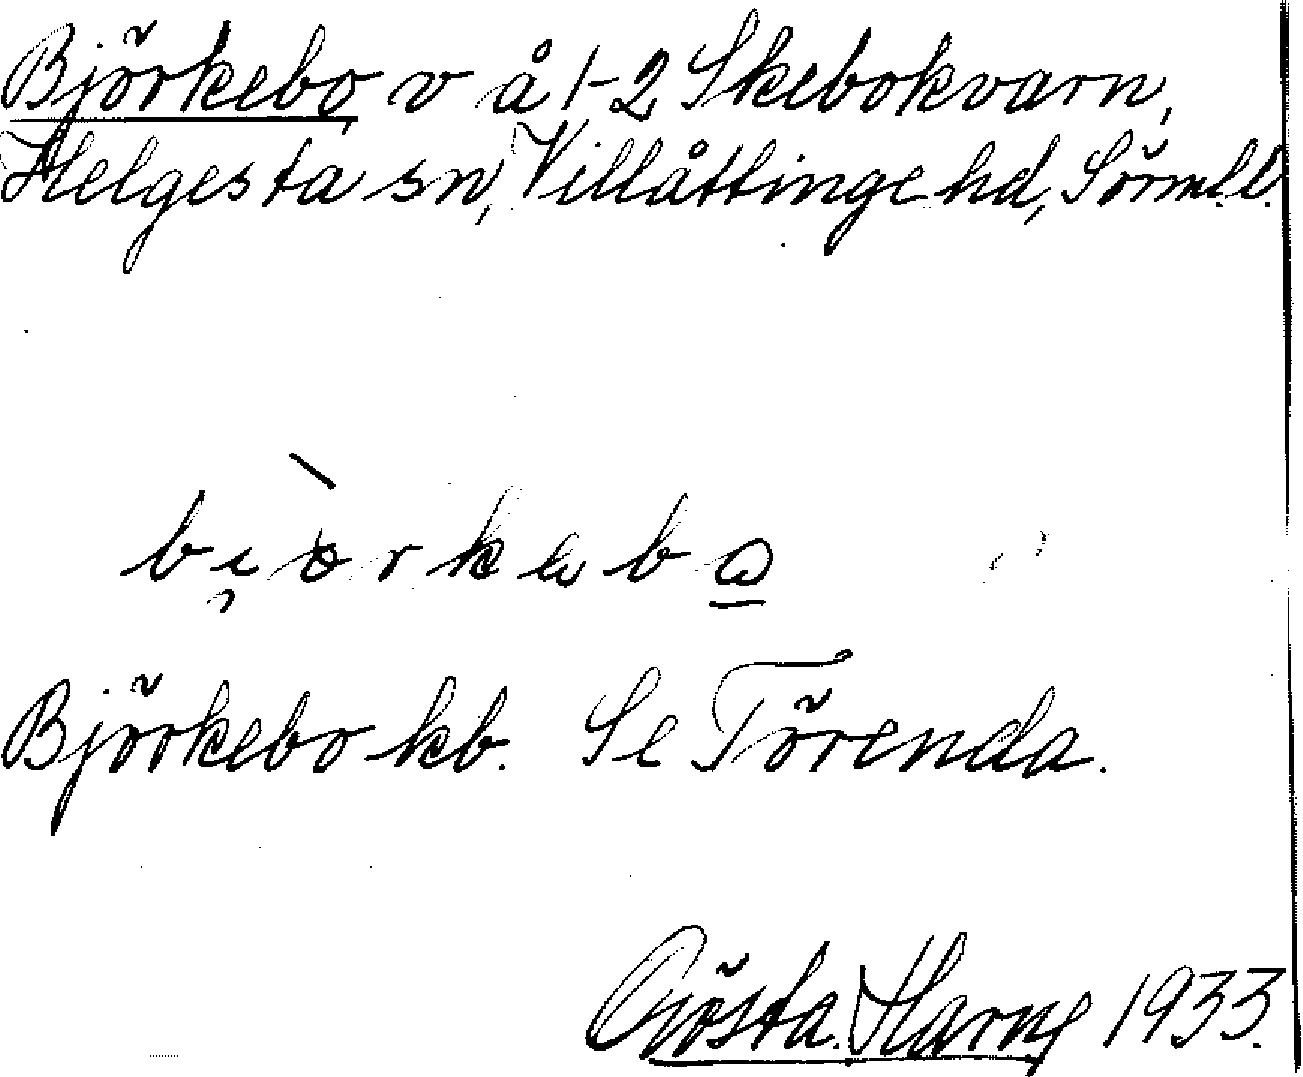 Björkebo, v å 1-2 Skebokvarn,
Helgesta sn, Villåttinge hd, Sörml.l.
bi̯òrkəbo̲
Björkebo kb. Se Törenda.
Gösta Harng 1933.